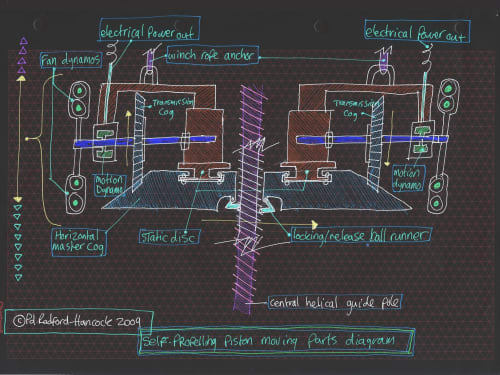 electrical power out
electrical power out
Fan dynamos
winch rope anchor
Transmission
Cog
Transmission
Cog
motion
Dynamo
motion
dynamo
Horizontal
master cog
static disc
locking/release ball runner
central helical guide pole
©Pd Radford-Hancock 2009
Self-Propelling Piston moving parts diagram